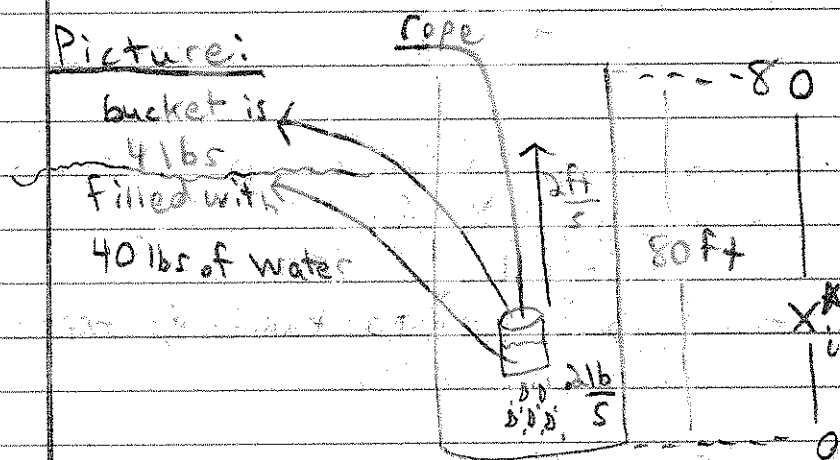 Picture:
rope
bucket is
4 lbs
filled with
40 lbs of water
2ft
s
80 ft
80
X*
.2lb
s
0